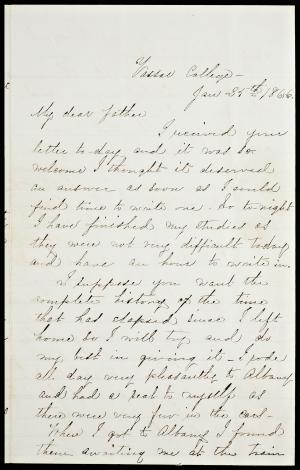 Vassar College -
Jan 25th, 1866.
My dear Father
I received your
letter to-day and it was so
welcome I thought it deserved
an answer as soon as I could
find time to write one. So to-night
I have finished my studies as
they were not very difficult today
and have an hour to write in.
I suppose you want the
complete history of the time
that has elapsed since I left
home so I will try and do
my best in giving it - I rode
all day very pleasantly to Albany
and had a seat to myself as
there were very few in the cars -
When I got to Albany I found
them awaiting me at the train